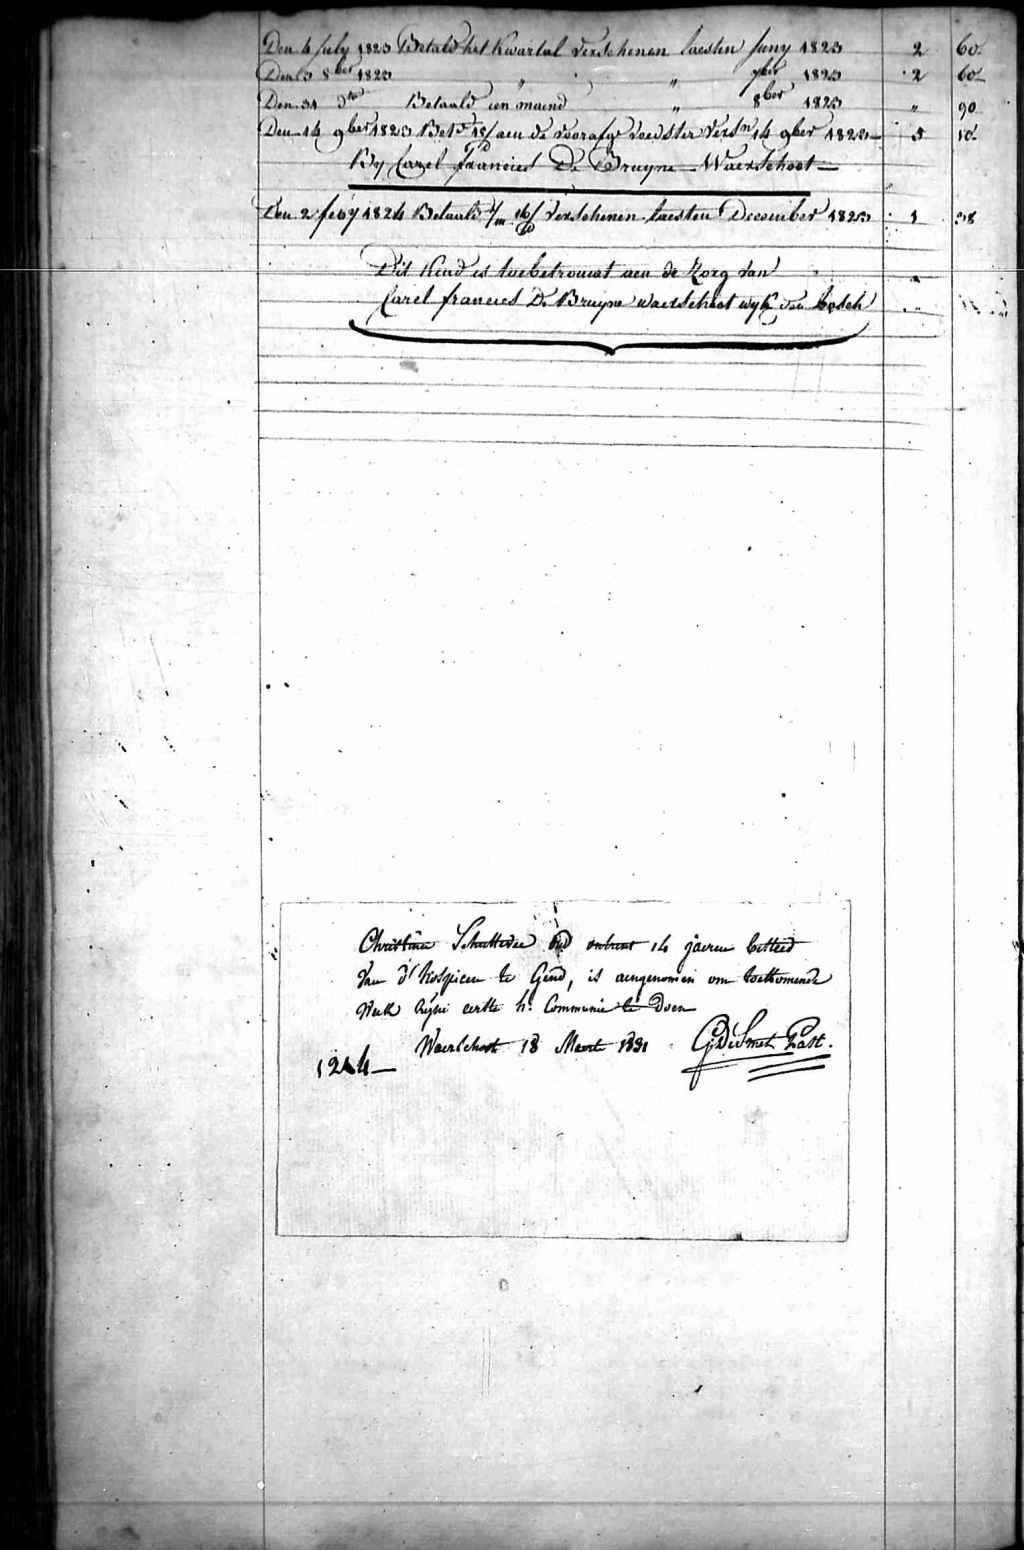 Den 4 July 1823 Betald het Kwartal verschenen laesten Juny 1823 2 60
Den 3 8ber 1823 " " 7ber 1823 2 60
Den 31 dto Betaald een maend " 8ber 1823 " 90
Den 14 9ber 1823 Bet aen de voorafge voedster versn 14 9ber 1823 5 10
By Carel Francies De Bruyne Waerschoot
Den 2 feby 1824 Betaald verschenen laesten December 1823 1 38
Dit Kind is toebetrouwt aen de Zorg van
Carel francies De Bruyne waerschoot wyk den bosch
Christina oud 14 jaeren besteed
van d'hospicen te Gend, is aengenomen om toekomende
week hijne eerste h. Communie te Doen
Waerschoot 18 Maert 1831 G. De Smet Past.
1244